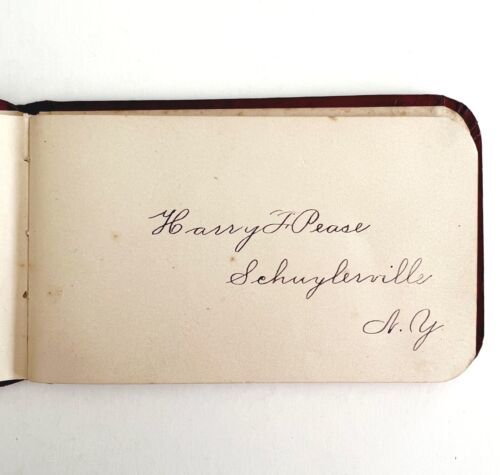 Harry F. Pease
Schuylerville
N.Y.